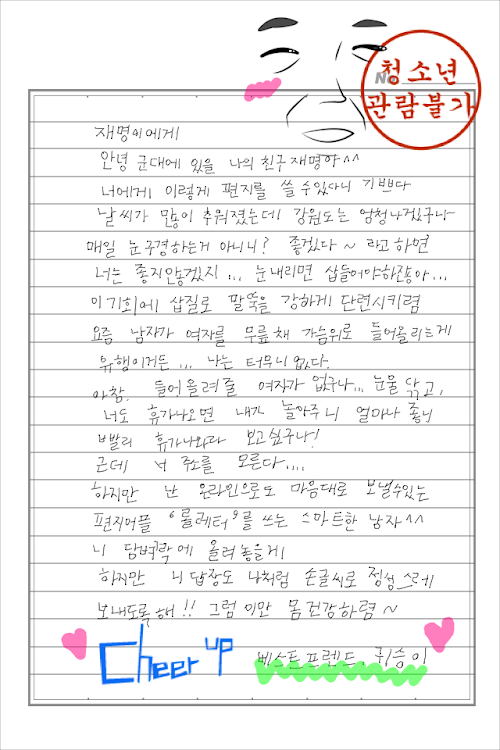 청소년
관람불가
재명이에게
안녕 군대에 있을 나의 친구 재명아^^
너에게 이렇게 편지를 쓸 수 있다니 기쁘다
날씨가 많이 추워졌는데 강원도는 엄청나겠구나
매일 눈구경하는거 아니니? 좋겠다~ 라고하면
너는 좋지않겠지... 눈내리면 삽들어야하잖아...
이기회에 삽질로 팔뚝을 강하게 단련시키렴
요즘 남자가 여자를 무릎채 가슴위로 들어올리는게
유행이거든... 나는 터무니없다.
아참. 들어올려줄 여자가 없구나... 눈물 닦고,
너도 휴가나오면 내가 놀아주니 얼마나 좋니
빨리 휴가나와라 보고싶구나!
근데 너 주소를 모른다....
하지만 난 온라인으로도 마음대로 보낼수있는
편지어플 '를레터'를 쓰는 스마트한 남자^^
니 담벼락에 올려놓을게
하지만 니 답장도 나처럼 손글씨로 정성스레
보내도록해!! 그럼 이만 몸건강하렴~
Cheer up
베스트프렌드, 귀승이